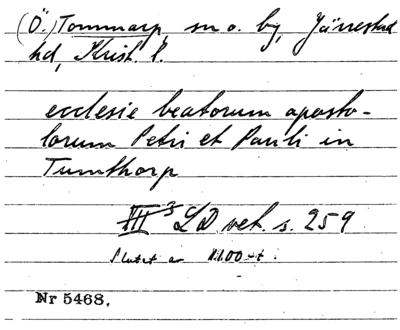 (Ö.) Tommarp, sn o. by, Järrestad
hd, Krist. l.
ecclesie beatorum aposto-
lorum Petri et Pauli in
Tumthorp
VII 3 LD vet. s. 259
Slutet av 1100-t.
Nr 5468.